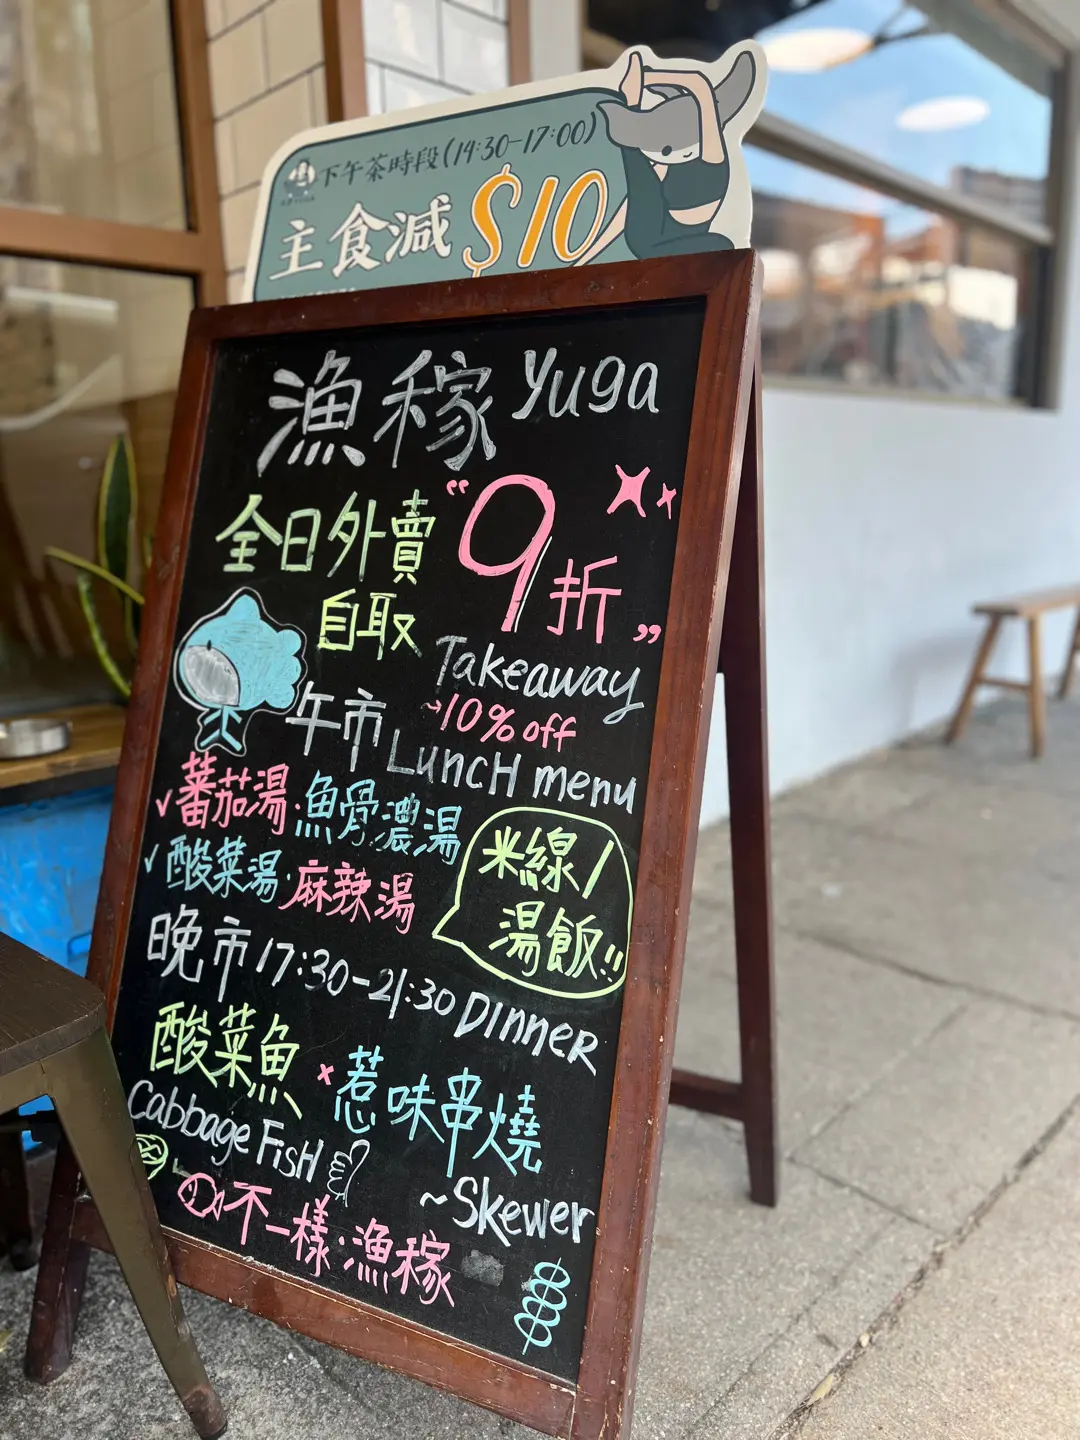 下午茶時段(14:30-17:00)
主食減 $10
漁稼 Yuga
全日外賣 "9折"
自取
Takeaway
~10% off
午市 Lunch menu
✓蕃茄湯·魚骨濃湯
✓酸菜湯·麻辣湯
米線/
湯飯!!
晚市 17:30-21:30 Dinner
酸菜魚 × 惹味串燒
Cabbage Fish
~Skewer
不一樣·漁稼